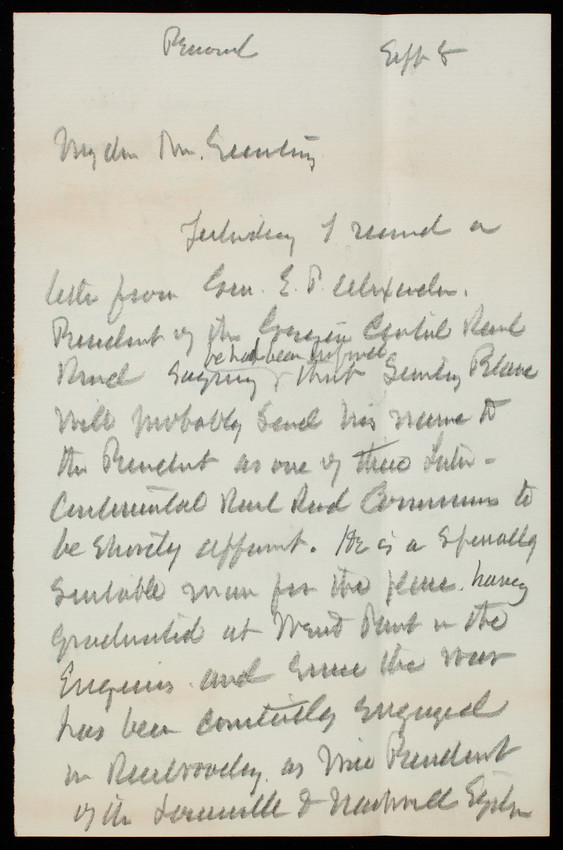 Personal Sept 8
My dear Mr.
Yesterday I received a
letter from Gen. E. P. Alexander.
President of the Georgia Central Rail
Road saying he had been informed that Secretary Blaine
will probably send his name to
the President as one of three Inter-
Continental Rail Road Commissioners to
be shortly appointed. He is a specially
suitable man for the place. having
graduated at West Point in the
Engineers. and since the war
has been constantly engaged
in Railroading. as Vice President
of the Louisville & Nashville System